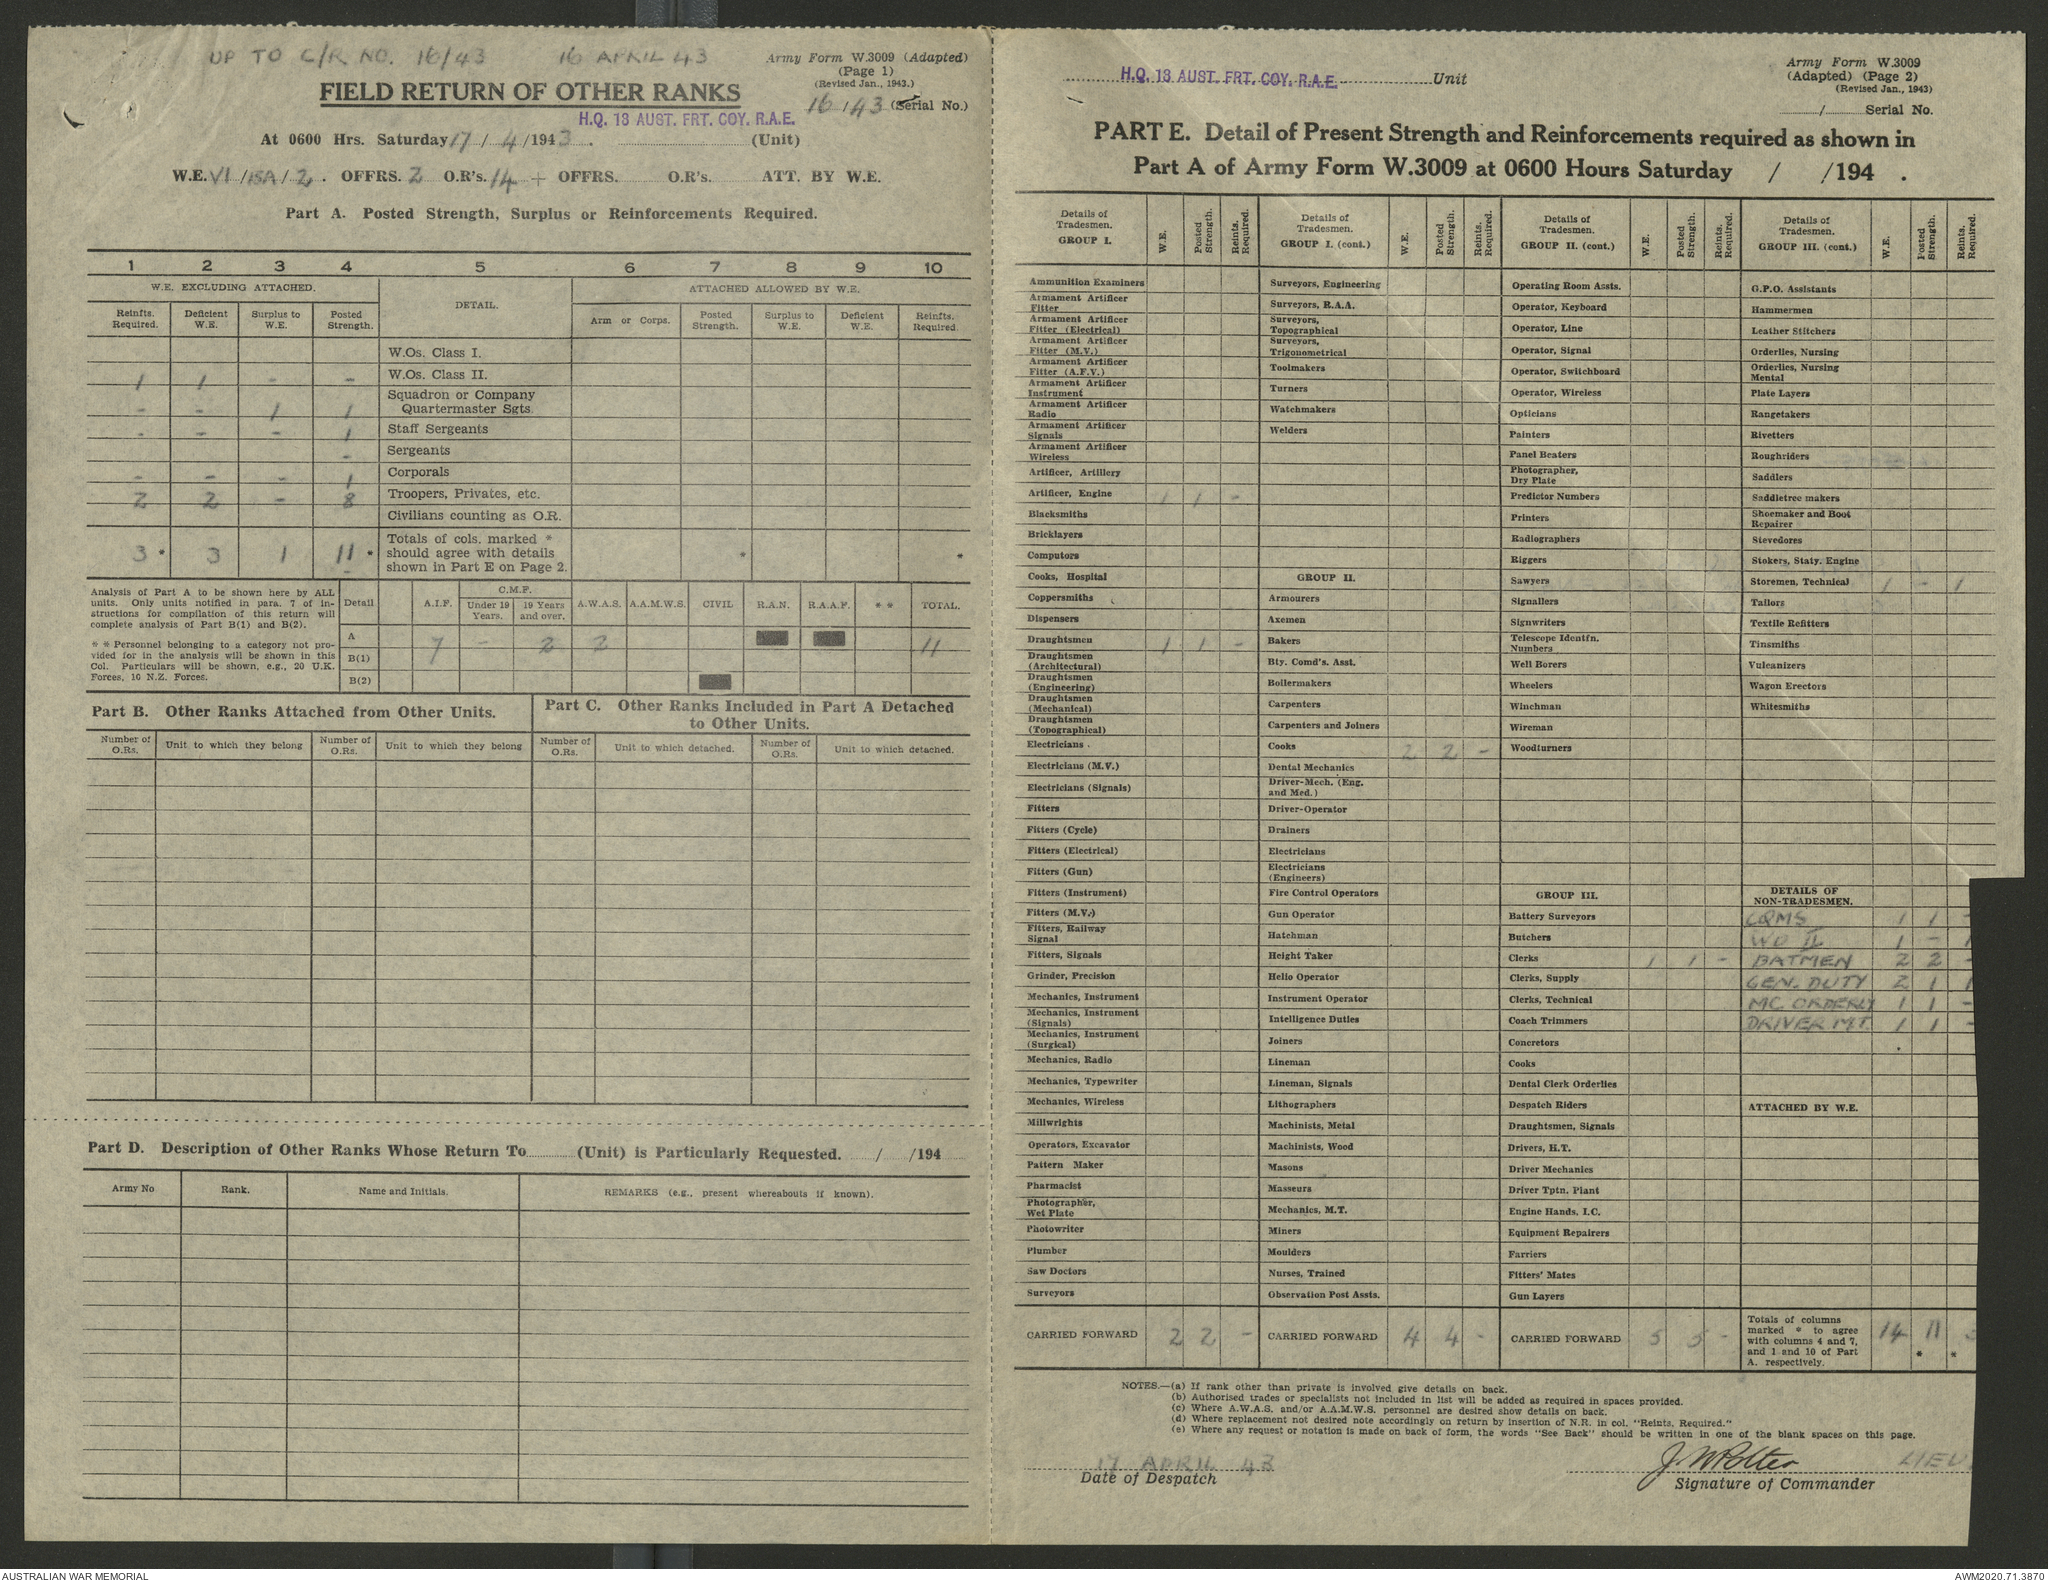 UP TO C/R NO. 16/43 16 APRIL 43
Army Form W.3009 (Adapted)
(Page 1)
(Revised Jan., 1943.)
FIELD RETURN OF OTHER RANKS
16/43 (Serial No.)
H.Q. 13 AUST. FRT. COY. R.A.E.
At 0600 Hrs. Saturday 17/4/1943. (Unit)
W.E. VI/15A/2. OFFRS. 2 O.R's. 14 + OFFRS. O.R's. ATT. BY W.E.
Part A. Posted Strength, Surplus or Reinforcements Required.
1 2 3 4 5 6 7 8 9 10
W.E. EXCLUDING ATTACHED. DETAIL. ATTACHED ALLOWED BY W.E.
Reinfts. Required. Deficient W.E. Surplus to W.E. Posted Strength. Arm or Corps. Posted Strength. Surplus to W.E. Deficient W.E. Reinfts. Required.
W.Os. Class I.
1 1 - - W.Os. Class II.
- - 1 1 Squadron or Company Quartermaster Sgts.
- - - 1 Staff Sergeants
- Sergeants
- - - 1 Corporals
2 2 - 8 Troopers, Privates, etc.
Civilians counting as O.R.
3 * 3 1 11 * Totals of cols. marked * should agree with details shown in Part E on Page 2. * *
Analysis of Part A to be shown here by ALL units. Only units notified in para. 7 of instructions for compilation of this return will complete analysis of Part B(1) and B(2).
* * Personnel belonging to a category not provided for in the analysis will be shown in this Col. Particulars will be shown, e.g., 20 U.K. Forces, 10 N.Z. Forces.
Detail A.I.F. C.M.F. Under 19 Years. 19 Years and over. A.W.A.S. A.A.M.W.S. CIVIL R.A.N. R.A.A.F. * * TOTAL.
A 7 - 2 2 11
B(1)
B(2)
Part B. Other Ranks Attached from Other Units.
Part C. Other Ranks Included in Part A Detached to Other Units.
Number of O.Rs. Unit to which they belong Number of O.Rs. Unit to which they belong Number of O.Rs. Unit to which detached. Number of O.Rs. Unit to which detached.
Part D. Description of Other Ranks Whose Return To (Unit) is Particularly Requested. / /194
Army No Rank. Name and Initials. REMARKS (e.g., present whereabouts if known).
H.Q. 13 AUST. FRT. COY. R.A.E. Unit
Army Form W.3009
(Adapted) (Page 2)
(Revised Jan., 1943)
/ Serial No.
PART E. Detail of Present Strength and Reinforcements required as shown in
Part A of Army Form W.3009 at 0600 Hours Saturday / /194 .
Details of Tradesmen. GROUP I. W.E. Posted Strength. Reints. Required.
Ammunition Examiners
Armament Artificer Fitter
Armament Artificer Fitter (Electrical)
Armament Artificer Fitter (M.V.)
Armament Artificer Fitter (A.F.V.)
Armament Artificer Instrument
Armament Artificer Radio
Armament Artificer Signals
Armament Artificer Wireless
Artificer, Artillery
Artificer, Engine 1 1 -
Blacksmiths
Bricklayers
Computors
Cooks, Hospital
Coppersmiths
Dispensers
Draughtsmen 1 1 -
Draughtsmen (Architectural)
Draughtsmen (Engineering)
Draughtsmen (Mechanical)
Draughtsmen (Topographical)
Electricians
Electricians (M.V.)
Electricians (Signals)
Fitters
Fitters (Cycle)
Fitters (Electrical)
Fitters (Gun)
Fitters (Instrument)
Fitters (M.V.)
Fitters, Railway Signal
Fitters, Signals
Grinder, Precision
Mechanics, Instrument
Mechanics, Instrument (Signals)
Mechanics, Instrument (Surgical)
Mechanics, Radio
Mechanics, Typewriter
Mechanics, Wireless
Millwrights
Operators, Excavator
Pattern Maker
Pharmacist
Photographer, Wet Plate
Photowriter
Plumber
Saw Doctors
Surveyors
CARRIED FORWARD 2 2 -
Details of Tradesmen. GROUP I. (cont.) W.E. Posted Strength. Reints. Required.
Surveyors, Engineering
Surveyors, R.A.A.
Surveyors, Topographical
Surveyors, Trigonometrical
Toolmakers
Turners
Watchmakers
Welders
GROUP II.
Armourers
Axemen
Bakers
Bty. Comd's. Asst.
Boilermakers
Carpenters
Carpenters and Joiners
Cooks 2 2 -
Dental Mechanics
Driver-Mech. (Eng. and Med.)
Driver-Operator
Drainers
Electricians
Electricians (Engineers)
Fire Control Operators
Gun Operator
Hatchman
Height Taker
Helio Operator
Instrument Operator
Intelligence Duties
Joiners
Lineman
Lineman, Signals
Lithographers
Machinists, Metal
Machinists, Wood
Masons
Masseurs
Mechanics, M.T.
Miners
Moulders
Nurses, Trained
Observation Post Assts.
CARRIED FORWARD 4 4 -
Details of Tradesmen. GROUP II. (cont.) W.E. Posted Strength. Reints. Required.
Operating Room Assts.
Operator, Keyboard
Operator, Line
Operator, Signal
Operator, Switchboard
Operator, Wireless
Opticians
Painters
Panel Beaters
Photographer, Dry Plate
Predictor Numbers
Printers
Radiographers
Riggers
Sawyers
Signallers
Signwriters
Telescope Identfn. Numbers
Well Borers
Wheelers
Winchman
Wireman
Woodturners
GROUP III.
Battery Surveyors
Butchers
Clerks 1 1 -
Clerks, Supply
Clerks, Technical
Coach Trimmers
Concretors
Cooks
Dental Clerk Orderlies
Despatch Riders
Draughtsmen, Signals
Drivers, H.T.
Driver Mechanics
Driver Tptn. Plant
Engine Hands, I.C.
Equipment Repairers
Farriers
Fitters' Mates
Gun Layers
CARRIED FORWARD 5 5 -
Details of Tradesmen. GROUP III. (cont.) W.E. Posted Strength. Reints. Required.
G.P.O. Assistants
Hammermen
Leather Stitchers
Orderlies, Nursing
Orderlies, Nursing Mental
Plate Layers
Rangetakers
Rivetters
Roughriders
Saddlers
Saddletree makers
Shoemaker and Boot Repairer
Stevedores
Stokers, Staty. Engine
Storemen, Technical 1 - 1
Tailors
Textile Refitters
Tinsmiths
Vulcanizers
Wagon Erectors
Whitesmiths
DETAILS OF NON-TRADESMEN.
CQMS 1 1 -
WO II 1 - 1
BATMEN 2 2 -
GEN. DUTY 2 1 1
MC. ORDERLY 1 1 -
DRIVER M.T. 1 1 -
ATTACHED BY W.E.
Totals of columns marked * to agree with columns 4 and 7, and 1 and 10 of Part A. respectively. 14 11 * 3 *
NOTES.—(a) If rank other than private is involved give details on back.
(b) Authorised trades or specialists not included in list will be added as required in spaces provided.
(c) Where A.W.A.S. and/or A.A.M.W.S. personnel are desired show details on back.
(d) Where replacement not desired note accordingly on return by insertion of N.R. in col. "Reints. Required."
(e) Where any request or notation is made on back of form, the words "See Back" should be written in one of the blank spaces on this page.
17 APRIL 43
Date of Despatch
J. W Potter LIEU
Signature of Commander
AUSTRALIAN WAR MEMORIAL
AWM2020.71.3870